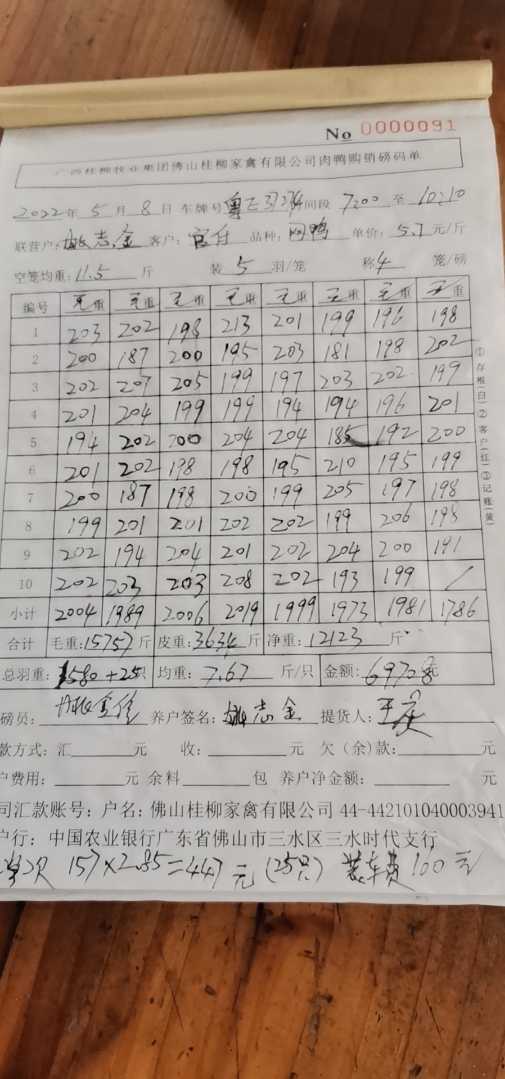 No 0000091
广西桂柳牧业集团佛山桂柳家禽有限公司肉鸭购销磅码单
2022年 5 月 8 日 车牌号 时间段 7:00 至 10:10
联营户: 姚志金 客户: 品种: 单价: 5.7 元/斤
空笼均重: 11.5 斤 装 5 羽/笼 称 4 笼/磅
编号 毛重 毛重 毛重 毛重 毛重 毛重 毛重 毛重
1 203 202 198 213 201 199 196 198
2 200 187 200 195 203 181 198 202
3 202 207 205 199 197 203 202 199
4 201 204 199 199 194 194 196 201
5 194 202 200 204 204 185 192 200
6 201 202 198 198 195 210 195 199
7 200 187 198 200 199 205 197 198
8 199 201 201 202 202 199 206 198
9 202 194 204 201 202 204 200 191
10 202 203 203 208 202 193 199 /
小计 2004 1989 2006 2019 1999 1973 1981 1786
合计 毛重: 15757 斤 皮重: 3634 斤 净重: 12123 斤
总羽重: 1580+25只 均重: 7.67 斤/只 金额: 69708元
磅员: 养户签名: 姚志金 提货人:
款方式: 汇 元 收: 元 欠(余)款: 元
户费用: 元 余料 包 养户净金额: 元
司汇款账号: 户名: 佛山桂柳家禽有限公司 44-442101040003941
户行: 中国农业银行广东省佛山市三水区三水时代支行
157×2.85=447元 (25只) 装车费100元
①存根(白)②客户(红)③记账(黄)